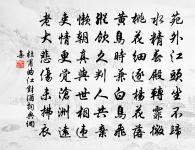 苑外江頭坐不歸
水精春殿轉霏微
桃花細逐楊花落
黃鳥時兼白鳥飛
縱飲久判人共棄
懶朝真與世相違
吏情更覺滄洲遠
老大悲傷未拂衣
杜甫曲江對酒詞典網
集